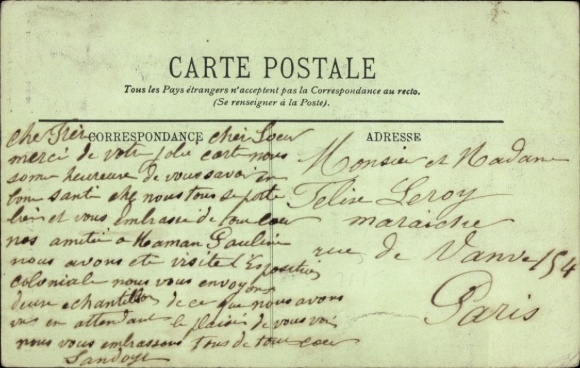 CARTE POSTALE
Tous les Pays étrangers n'acceptent pas la Correspondance au recto.
(Se renseigner à la Poste).
CORRESPONDANCE
che Frer cher Soeur
merci de votr jolie cart nous
somm heureuse de vous savoir en
bonn santi che nous tous se porte
bien et vous embrasse de tou coeur
nos amitié a Maman Pauline
nous avons ete visite l'Exposition
coloniale nous vous envoyons
deux echantillos de ce que nous avons
vus en attendant le plaisi de vous voir
nous vous embrassons tous de tou coeur
Landoyt
ADRESSE
Monsier et Madame
Felix Leroy
maraiche
rue de Vanve 154
Paris